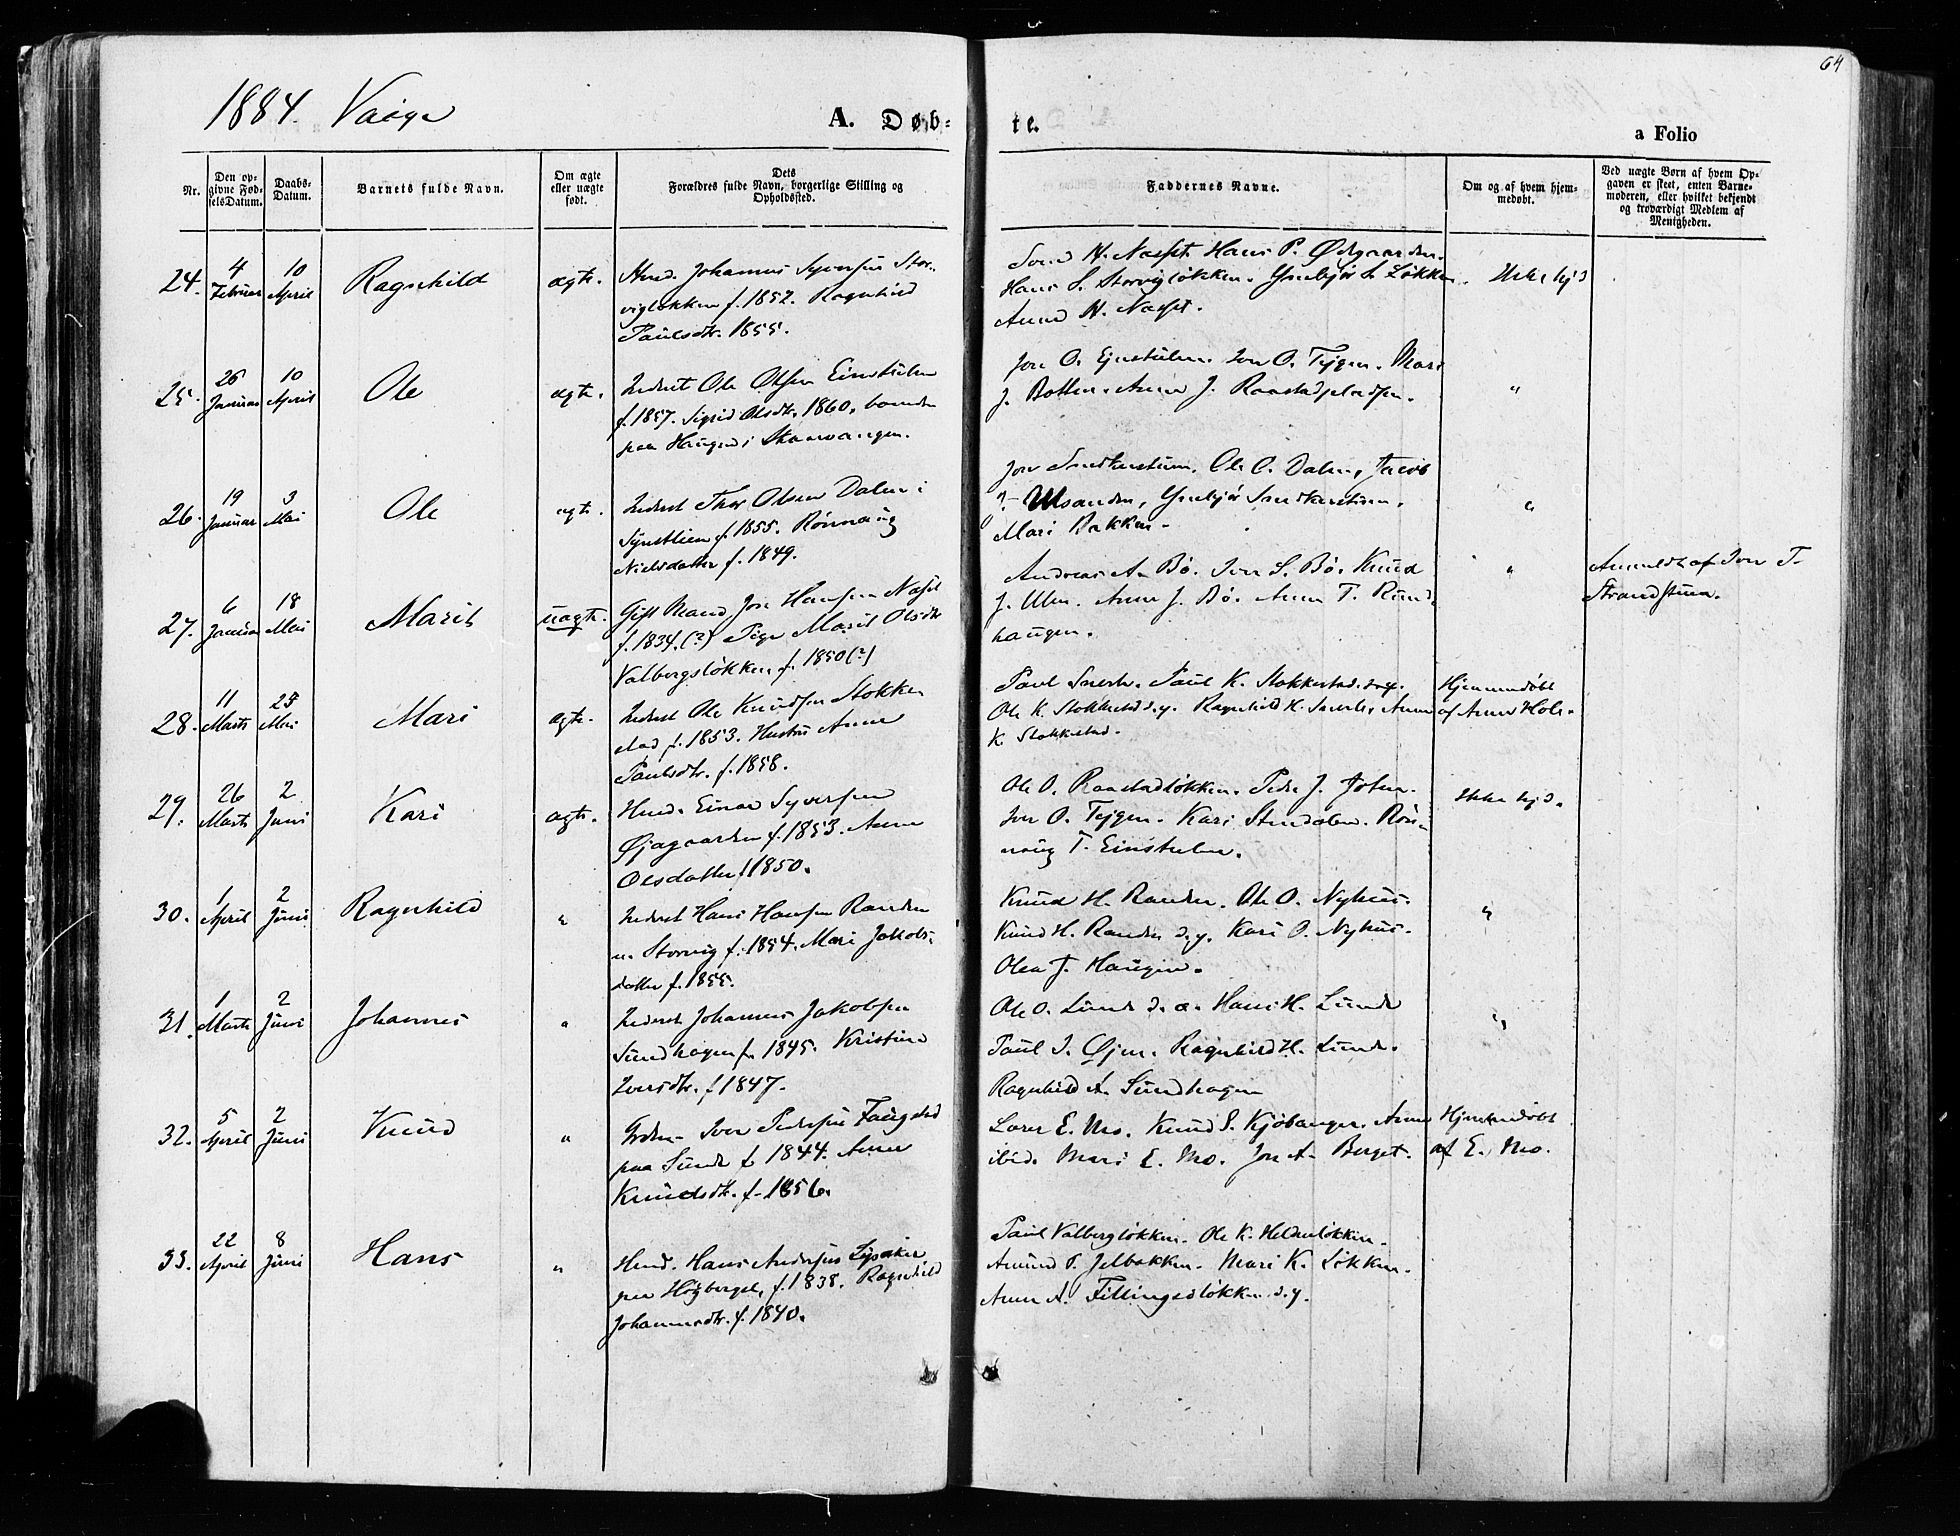 64
1884. Vaage
A. Døb-
te.
a Folio
Nr.
Den op-
givne Fød-
selsDatum.
Daabs-
Datum.
Barnets fulde Navn.
Om ægte
eller uægte
født.
Dets
Forældres fulde Navn, borgerlige Stilling og
Opholdssted.
Faddernes Navne.
Om og af hvem hjem-
medøbt.
Ved uægte Børn af hvem Op-
gaven er skeet, enten Barne-
moderen, eller hvilket bekjendt
og troværdigt Medlem af
Menigheden.
24. 4 Februar 10 April Ragnhild ægte.
Johannes Syversen Stor-
vigløkken f. 1852. Ragnhild
Paulsdtr. 1855.
H. Næsset Hans P. Ødegaarden.
Hans S. Storvigløkken. S. Løkken.
Anne H. Næsset.
Ikke hjd
25. 26 Januar 10 April Ole ægte.
Inderst Ole Olsen Einstulen
f. 1857. Sigrid Olsdtr. 1860, boende
paa Haugen i Skaarvangen.
Jon O. Ejnstulen. Iver O. Tejgen. Mari
J. Botten. Anne J. Raastadpladsen.
"
26. 19 Januar 3 Mai Ole ægte.
Inderst Thor Olsen Dalen i
f. 1855. Rønnaug
Nielsdatter f. 1849.
Ole O. Dalen, Jacob
Mari Bakken.
"
27. 6 Januar 18 Mai Marit uægte.
Gift Mand Jon Hansen
f. 1834.(?) Pige Marit Olsdtr
Valbergsløkken f. 1850(?)
Andreas A. Bø. Iver S. Bø. Knud
J. Ulen. Anne J. Bø. Anne T. Rund-
haugen.
"
Anmeldt af Iver T.
Strandstuen.
28. 11 Marts 25 Mai Mari ægte.
Inderst Ole Knudsen Stokke-
stad f. 1853. Hustru Anne
Paulsdtr. f. 1858.
Paul Snerle. Paul K. Stokkestad. d.y.
Ole K. Stokkestad d.y. Ragnhild K. Snerle. Anne
K. Stokkestad.
Hjemmedøbt
af Anne Hole.
29. 26 Marts 2 Juni Kari ægte.
Einar Syversen
Øjegaarden f. 1853. Anne
Olsdatter f 1850.
Ole O. Raastadløkken. Peder J.
Iver O. Tejgen. Kari Stendalen. Røn-
naug T. Einstulen.
Ikke hjd.
30. 1 April 2 Juni Ragnhild "
Inderst Hans Hansen Randen
u. Storvig f. 1854. Mari Jakobs-
datter f. 1855.
Knud H. Randen. Ole O. Nyhus.
Knud H. Randen d.y. Kari O. Nyhus.
Olea J. Haugen.
"
31. 1 Marts 2 Juni Johannes "
Inderst Johannes Jakobsen
Sundhagen f. 1845. Kristine
Iversdtr. f 1847.
Ole O. Lunde d. æ. Hans H. Lunde
Paul I. Øjen. Ragnhild H. Lunde.
Ragnhild A. Sundhagen
"
32. 5 April 2 Juni Knud "
Iver Pedersen Faugstad
paa Sunde f. 1844. Anne
Knudsdtr. f. 1856.
E. Mo. Knud S. Kjøbanger. Anne
ibid. Mari E. Mo. Jon A. Berget.
Hjemmedøbt
af E. Mo.
33. 22 April 8 Juni Hans "
Hans Andersen
f. 1838. Ragnhild
Johannesdtr. f. 1840.
Paul Valbergløkken. Ole K. Heldenløkken.
Amund P. Jelbakken. Mari K. Løkken.
Anne A. Fillingsdløkken d.y.